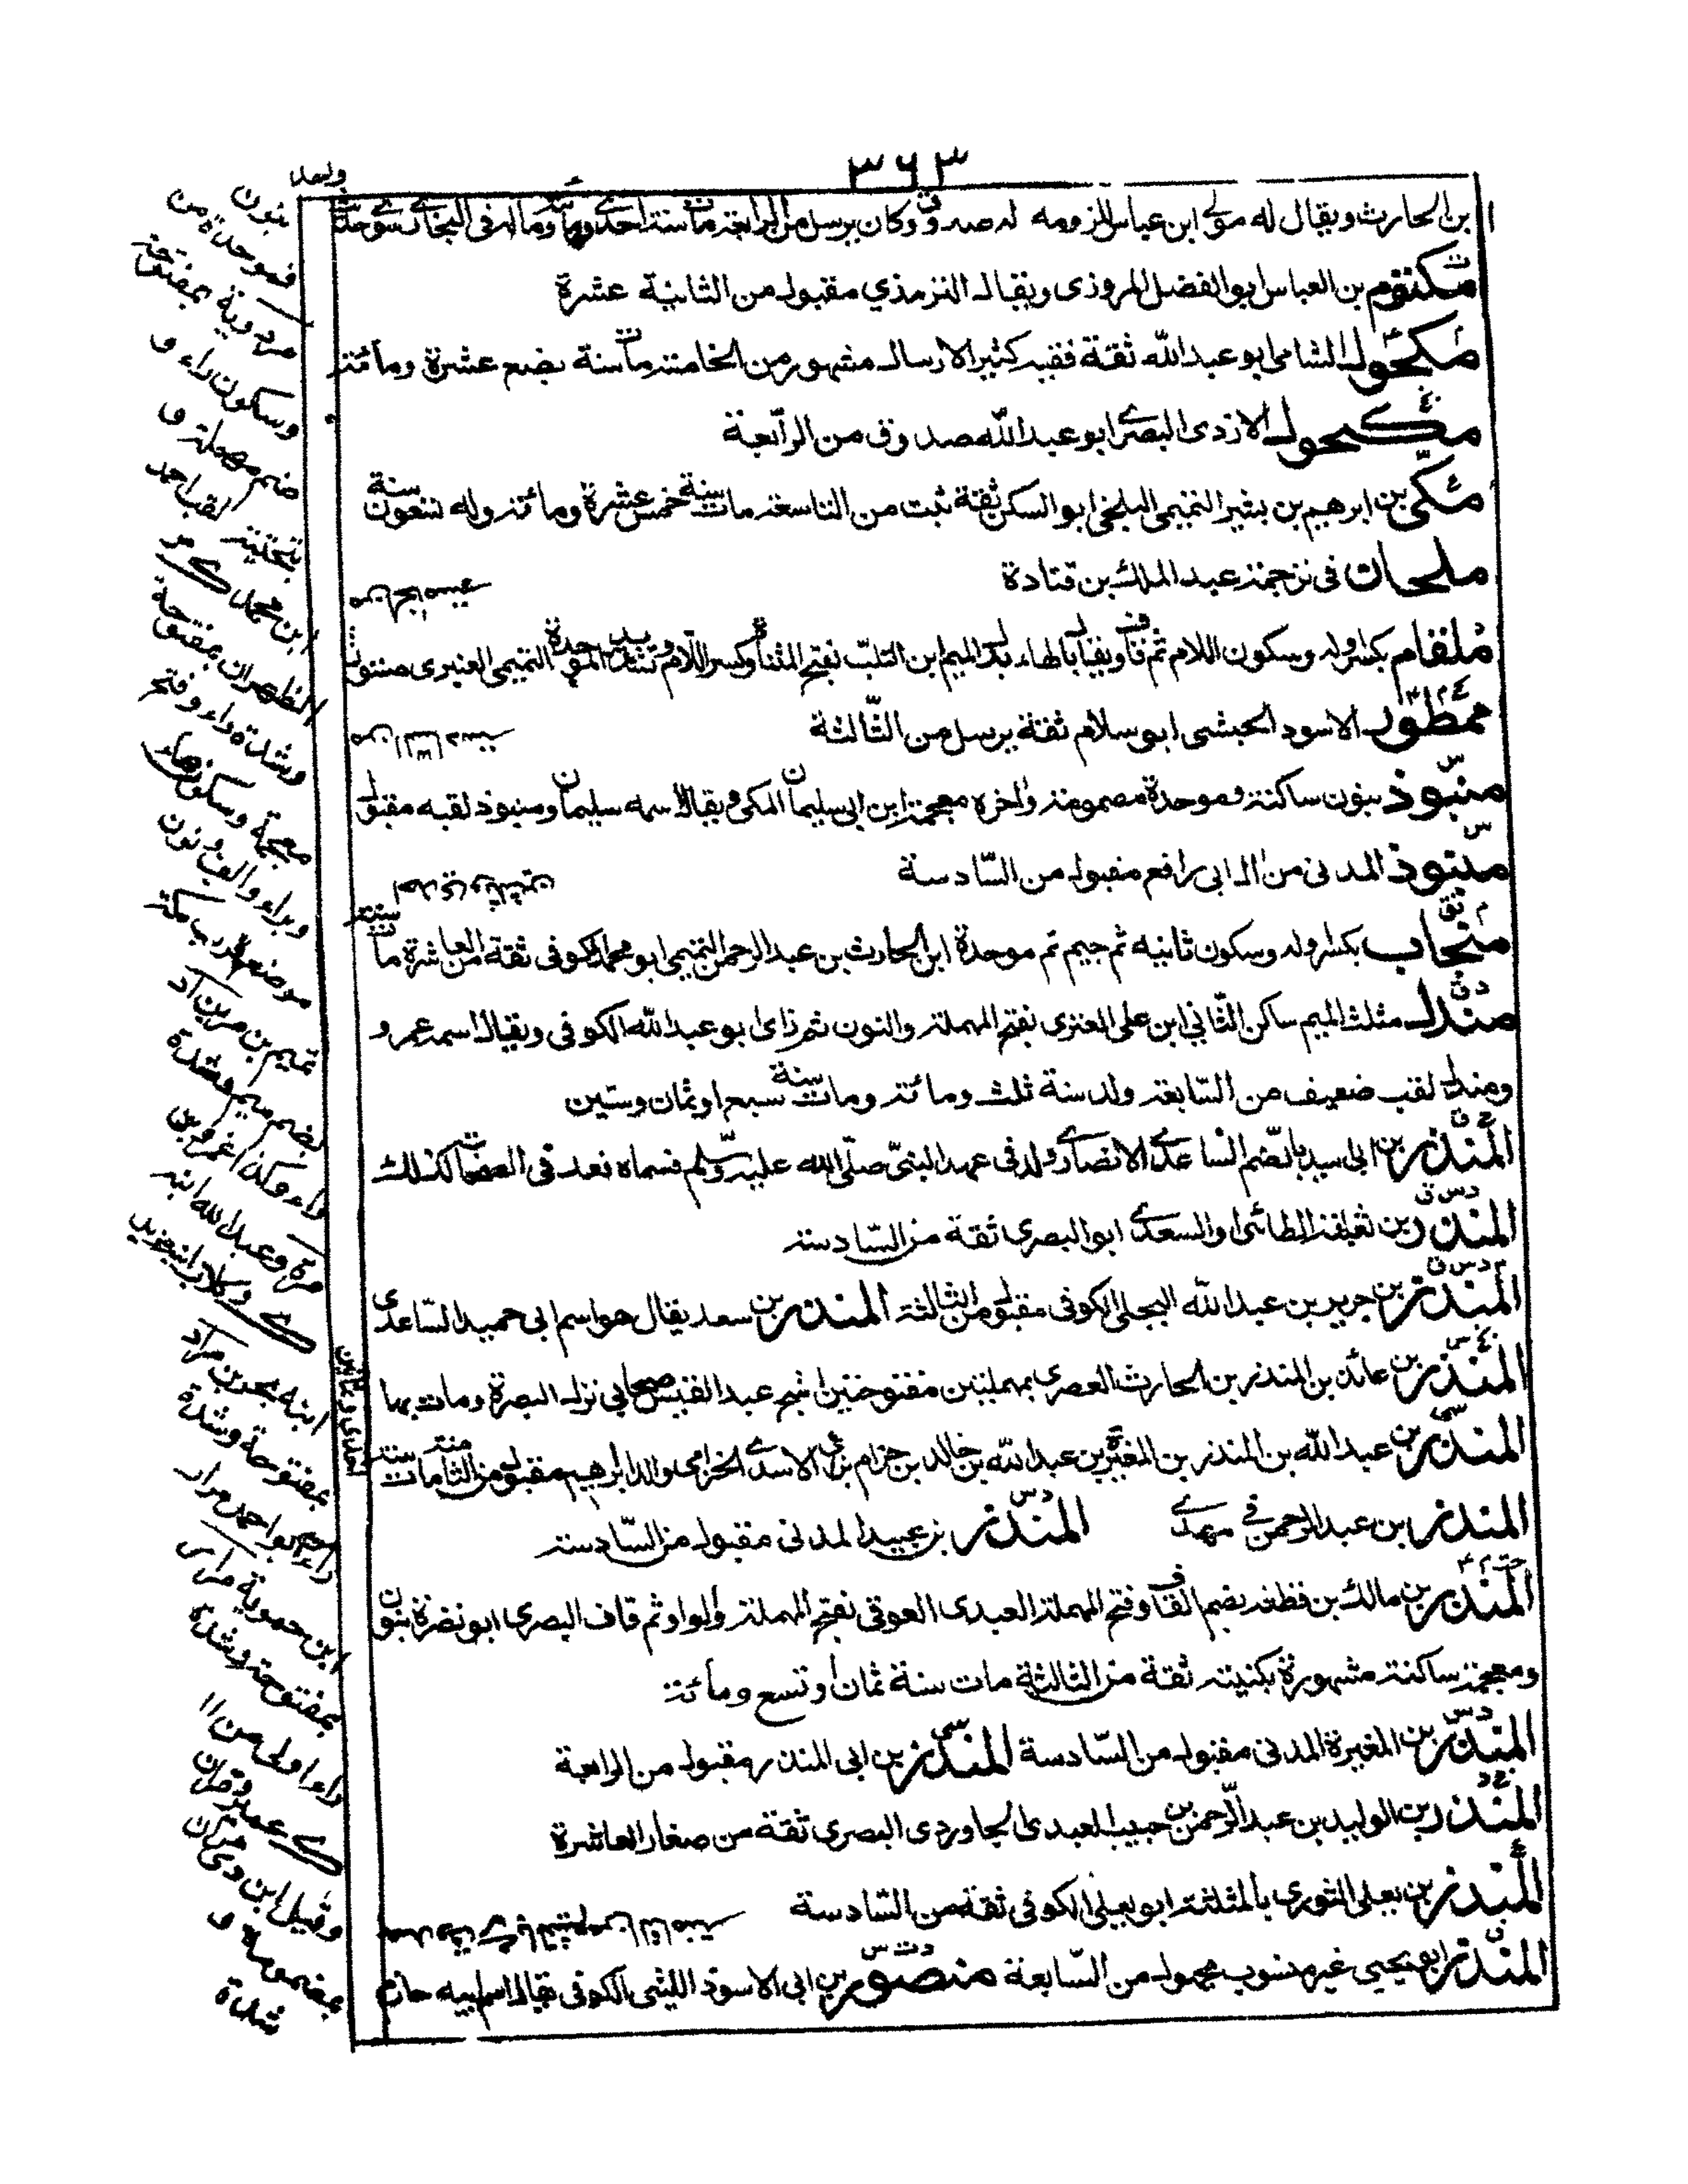 ٣٦٣
بن الحارث ويقال له مولى ابن عباس للزومه له صدوق وكان يرسل من الرابعة مات سنة احدى ومائة وما له في البخاري سوى حديث
واحد
مكتوم بن العباس ابو الفضل المروزى ويقال الترمذي مقبول من الثانية عشرة
مكحول الشامى ابو عبد الله ثقة فقيه كثير الارسال مشهور من الخامسة مات سنة بضع عشرة ومائة
مكحول الازدى البصرى ابو عبد الله صدوق من الرابعة
مكى بن ابرهيم بن بشير التميمى البلخى ابو السكن ثقة ثبت من التاسعة مات سنة خمس عشرة ومائة وله تسعون سنة
ملحان فى ترجمة عبد الملك بن قتادة
ملقام بكسر اوله وسكون اللام ثم قاف ويقال بالهاء بدل الميم ابن التلب بفتح المثناة وكسر اللام وتشديد الموحدة التميمى العنبرى مستور
من الخامسة
ممطور الاسود الحبشى ابو سلام ثقة يرسل من الثالثة
منبوذ بنون ساكنة وموحدة مضمومة واخره معجمة ابن ابى سليمان المكى ويقال اسمه سليمان ومنبوذ لقبه مقبول
من السادسة
منبوذ المدنى من ال ابى رافع مقبول من السادسة
منجاب بكسر اوله وسكون ثانيه ثم جيم ثم موحدة ابن الحارث بن عبد الرحمن التميمى ابو محمد الكوفى ثقة من العاشرة مات سنة
احدى وثلثين
مندل مثلث الميم ساكن الثانى ابن على العنزى بفتح المهملة والنون ثم زاى ابو عبد الله الكوفى ويقال اسمه عمرو
ومندل لقب ضعيف من السابعة ولد سنة ثلث ومائة ومات سنة سبع او ثمان وستين
المنذر بن ابى اسيد بالضم الساعدى الانصارى ولد فى عهد النبى صلى الله عليه وسلم فسماه فعد فى الصحابة لذلك
المنذر بن ثعلبة الطائى او السعدى ابو البصرى ثقة من السادسة
المنذر بن جرير بن عبد الله البجلى الكوفى مقبول من الثالثة المنذر بن سعد يقال هو اسم ابى حميد الساعدى
المنذر بن عائذ بن المنذر بن الحارث العصرى بمهملتين مفتوحتين اشج عبد القيس صحابى نزل البصرة ومات بها
المنذر بن عبد الله بن المنذر بن المغيرة بن عبد الله بن خالد بن حزام بزاى الاسدى الحزامى والد ابرهيم مقبول من الثامنة مات سنة
احدى وثمانين
المنذر بن عبد الرحمن فى مهدى المنذر بن عبيد المدنى مقبول من السادسة
المنذر بن مالك بن قطعة بضم القاف وفتح المهملة العبدى العوقى بفتح المهملة والواو ثم قاف البصرى ابو نضرة بنون
ومعجمة ساكنة مشهورة بكنيته ثقة من الثالثة مات سنة ثمان او تسع ومائة
المنذر بن المغيرة المدنى مقبول من السادسة المنذر بن ابى المنذر مقبول من الرابعة
المنذر بن الوليد بن عبد الرحمن بن حبيب العبدى الجارودى البصرى ثقة من صغار العاشرة
المنذر بن يعلى الثورى بالمثلثة ابو يعلى الكوفى ثقة من السادسة
المنذر ابو يحيى غير منسوب مجهول من السابعة منصور بن ابى الاسود الليثى الكوفى يقال اسم ابيه حازم
صدوق رمى بالتشيع من الثامنة
بنون
فموحدة من
مردوية بمفتوحة
وسكون راء و
ضم مهملة و
تحتية لقب احمد
ابن محمد
الظهران بمفتوحة
وشدة راء وفتح
معجمة وسكون هاء
وبراء والف ونون
موضع قرب مكة
تميم بن مر بن اد
بضم ميم وشدة
راء وكذا عمرو بن
مرة وعبد الله ابنه
مفتوحة وشدة
راء ابو احمد مرار
ابن حموية
بمفتوحة وشدة
راء اولى من
وقيل ابن
بمضمومة و
شدة